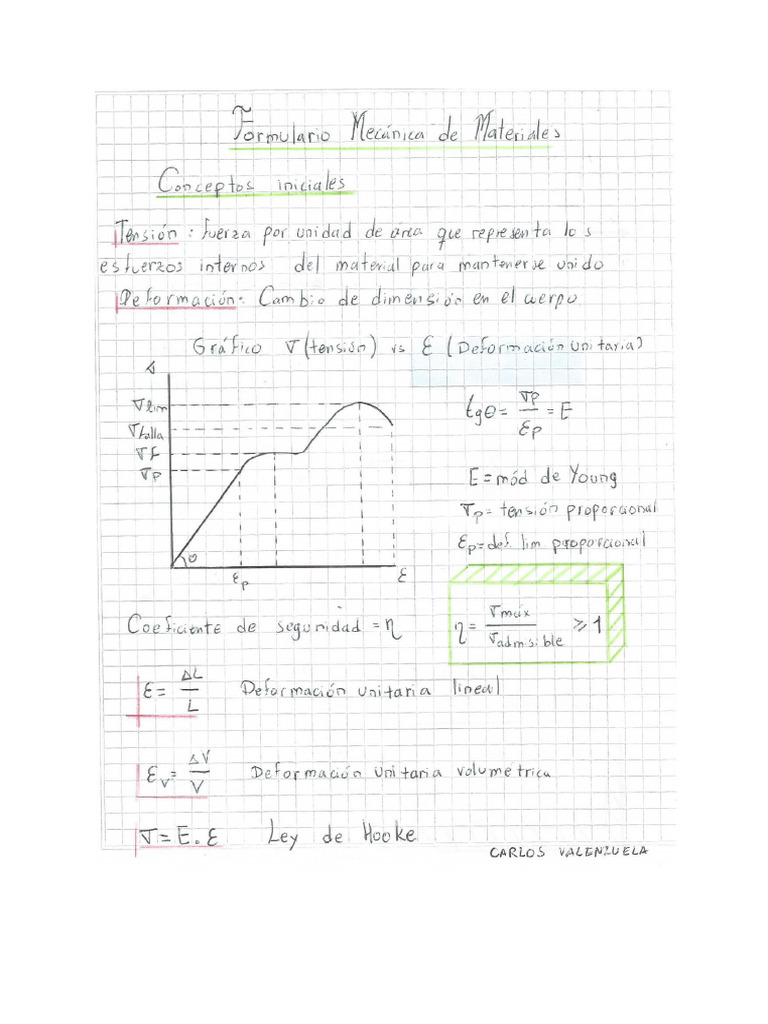 Formulario Mecánica de Materiales
Conceptos iniciales
Tensión: fuerza por unidad de área que representa los
esfuerzos internos del material para mantenerse unido
Deformación: Cambio de dimensión en el cuerpo
Gráfico σ (tensión) vs ε (Deformación Unitaria)
σ
σlim
σfalla
σf
σp
θ
εp
ε
tgθ = σp/εp = E
E = mód de Young
σp = tensión proporcional
εp = def. lim proporcional
Coeficiente de seguridad = η
η = σmáx/σadmisible ≥ 1
ε = ΔL/L Deformación unitaria lineal
εv = ΔV/V Deformación unitaria volumetrica
σ = E . ε Ley de Hooke
CARLOS VALENZUELA